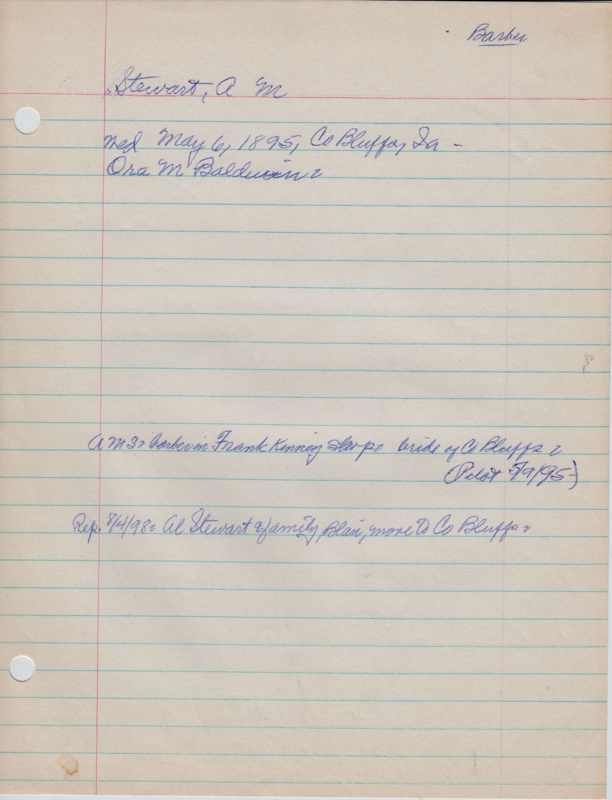 Barber
Stewart, A M
med May 6, 1895, Co Bluffs, Ia -
Ora M Baldwin =
A M S = barber in Frank Kenney shop = bride of Co Bluffs =
(Pilot 5/9/95)
Rep. 8/4/98 = Al Stewart & family Blair, move to Co Bluffs =